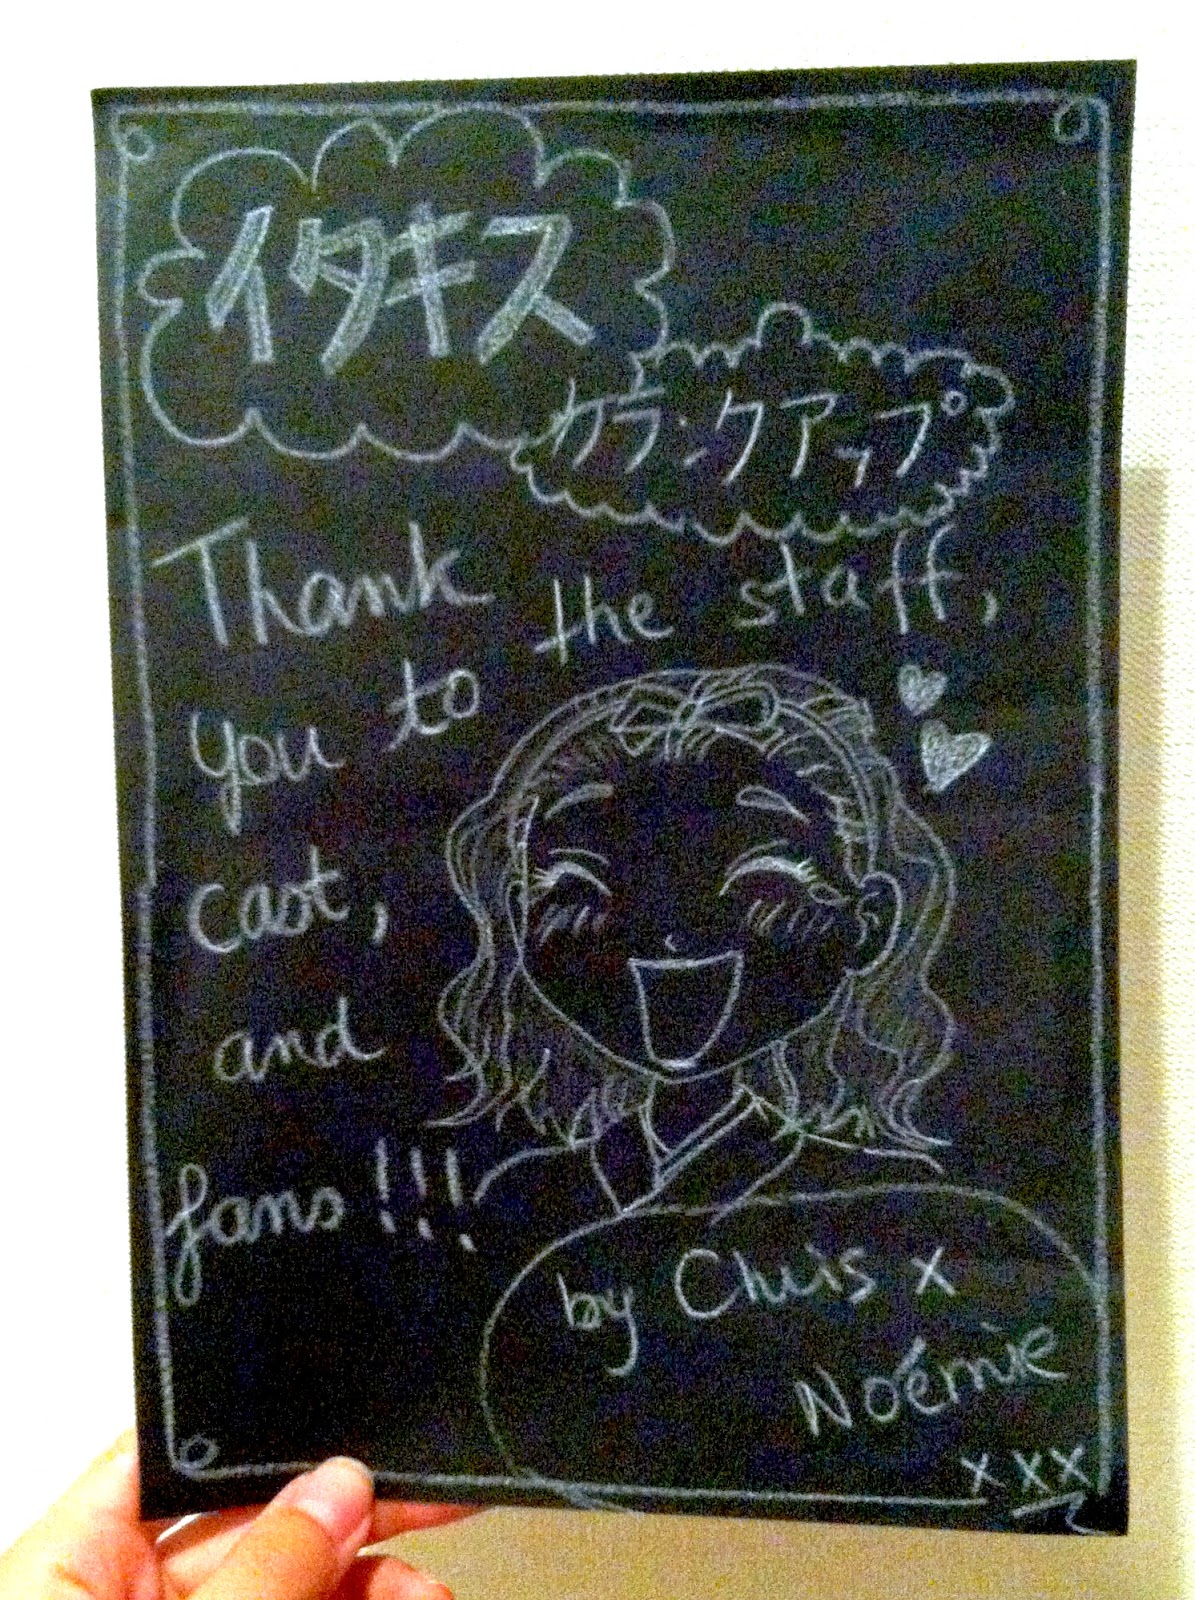 イタキス
クランクアップ
Thank
you to the staff,
cast,
and
fans!!!
by Chris x
Noémie
xxx